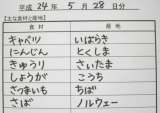 平成 24年 5月 28日分
【主な食材と産地】
食材 産地
キャベツ いばらき
にんじん とくしま
きゅうり さいたま
しょうが こうち
さつまいも ちば
さば ノルウェー